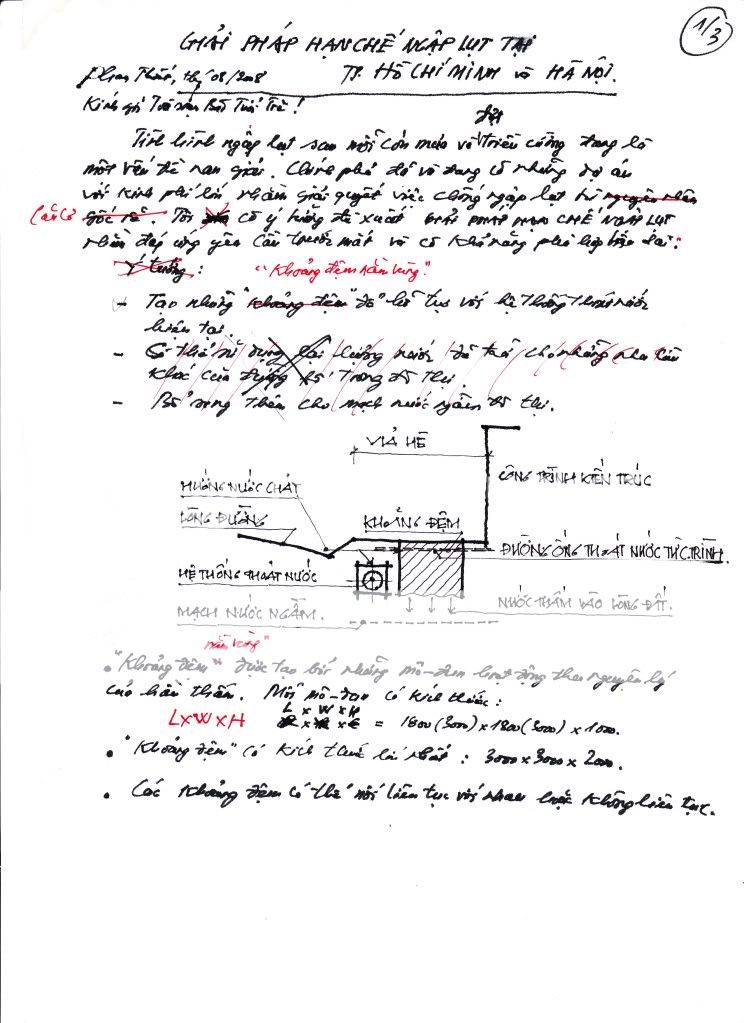 1/3
GIẢI PHÁP HẠN CHẾ NGẬP LỤT TẠI
TP. HỒ CHÍ MINH và HÀ NỘI.
08/2008
Kính gửi Toà soạn Báo Tuổi Trẻ!
đợt
Tình hình ngập lụt sau mỗi cơn mưa và triều cường đang là
một vấn đề nan giải. Chính phủ đã và đang có những dự án
với kinh phí lớn nhằm giải quyết việc chống ngập lụt từ nguyên nhân
gốc rễ. Tôi có ý tưởng đề xuất GIẢI PHÁP HẠN CHẾ NGẬP LỤT
nhằm đáp ứng yêu cầu trước mắt và có khả năng phù hợp lâu dài:
Ý tưởng: "Khoảng đệm bền vững."
- Tạo những "khoảng đệm" để hỗ trợ với hệ thống thoát nước
hiện tại.
- Có thể sử dụng lại lượng nước đã trữ cho những nhu cầu
khác của đô thị.
- Bổ sung thêm cho mạch nước ngầm đô thị.
VỈA HÈ
CÔNG TRÌNH KIẾN TRÚC
MƯƠNG NƯỚC CHẢY
LÒNG ĐƯỜNG
KHOẢNG ĐỆM
ĐƯỜNG ỐNG THOÁT NƯỚC TỪ C.TRÌNH.
HỆ THỐNG THOÁT NƯỚC
MẠCH NƯỚC NGẦM.
NƯỚC THẤM VÀO LÒNG ĐẤT.
bền vững"
• "Khoảng đệm" được tạo bởi những mô-đun hoạt động theo nguyên lý
của hầm thấm. Mỗi mô-đun có kích thước:
L x W x H
LxWxH = 1800(3000) x 1800(3000) x 1000.
• "Khoảng đệm" có kích thước lớn nhất: 3000 x 3000 x 2000.
• Các khoảng đệm có thể nối liên tục với nhau hoặc không liên tục.